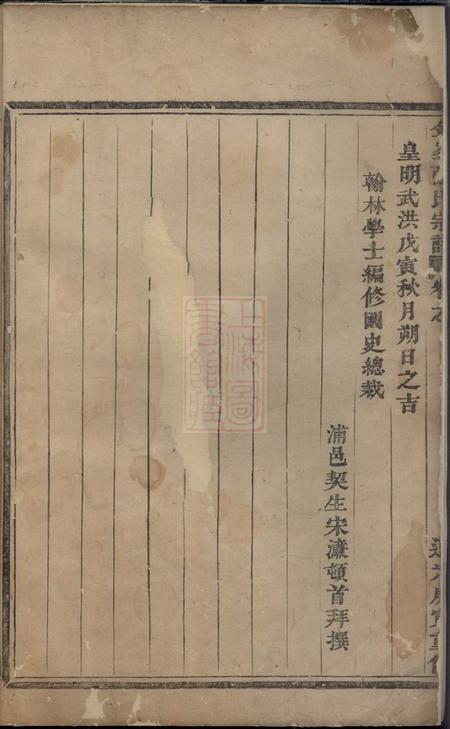 宗譜
皇明武洪戊寅秋月朔日之吉
翰林學士編修國史總裁
浦邑契生宋濂頓首拜撰
上海圖書館藏